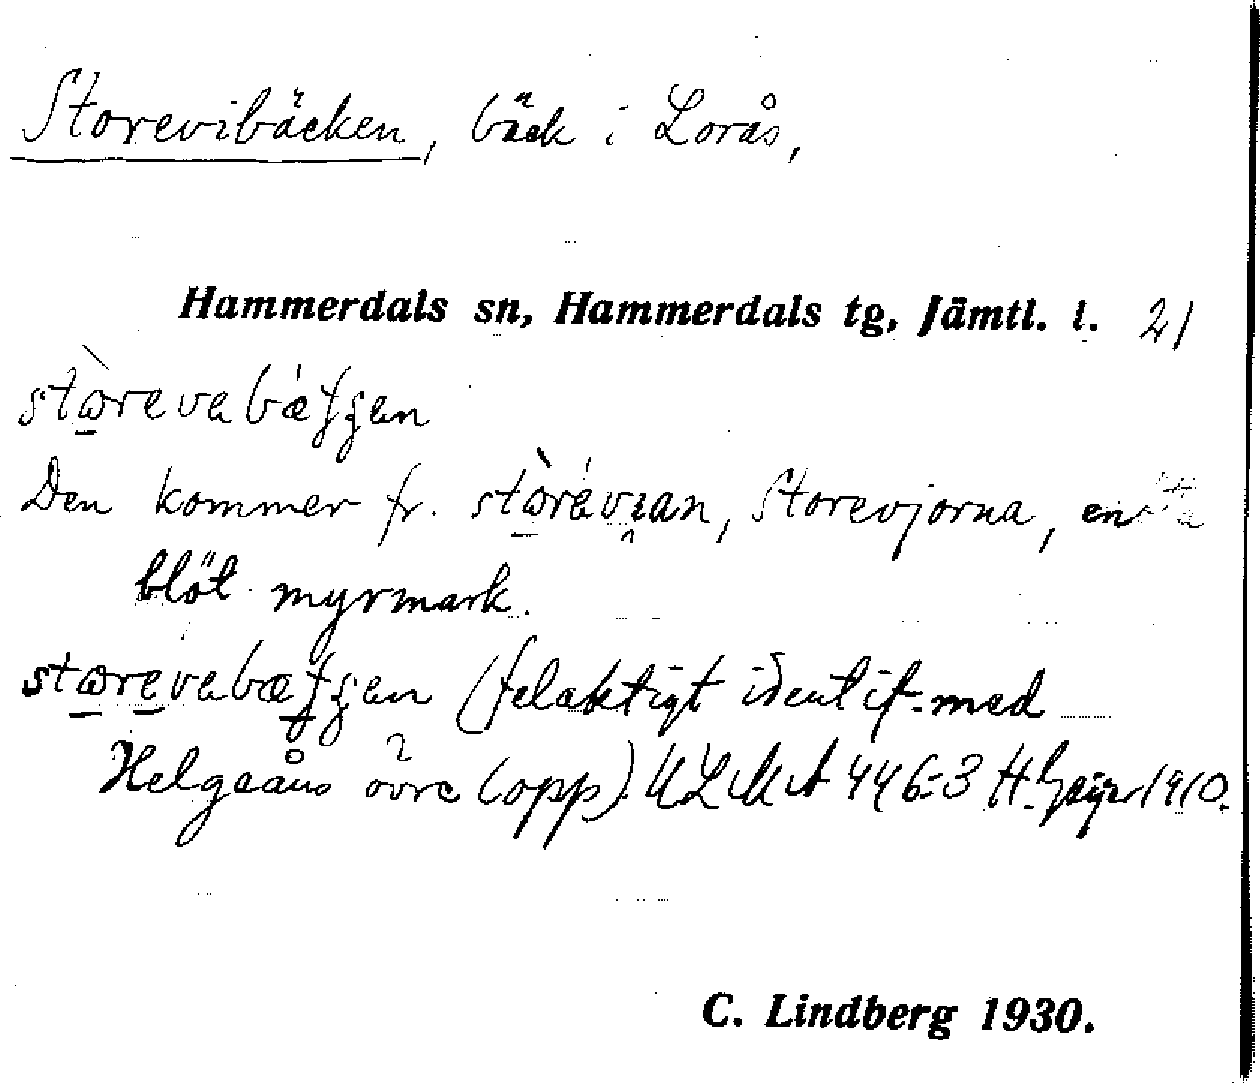 Storevibäcken, bäck i Lorås,
Hammerdals sn, Hammerdals tg, Jämtl. l. 21
Den kommer fr. Storevjorna, en
blöt myrmark.
(felaktigt identif. med
Helgeåns övre lopp). ULMA 446:3 H. Geijer 1910.
C. Lindberg 1930.